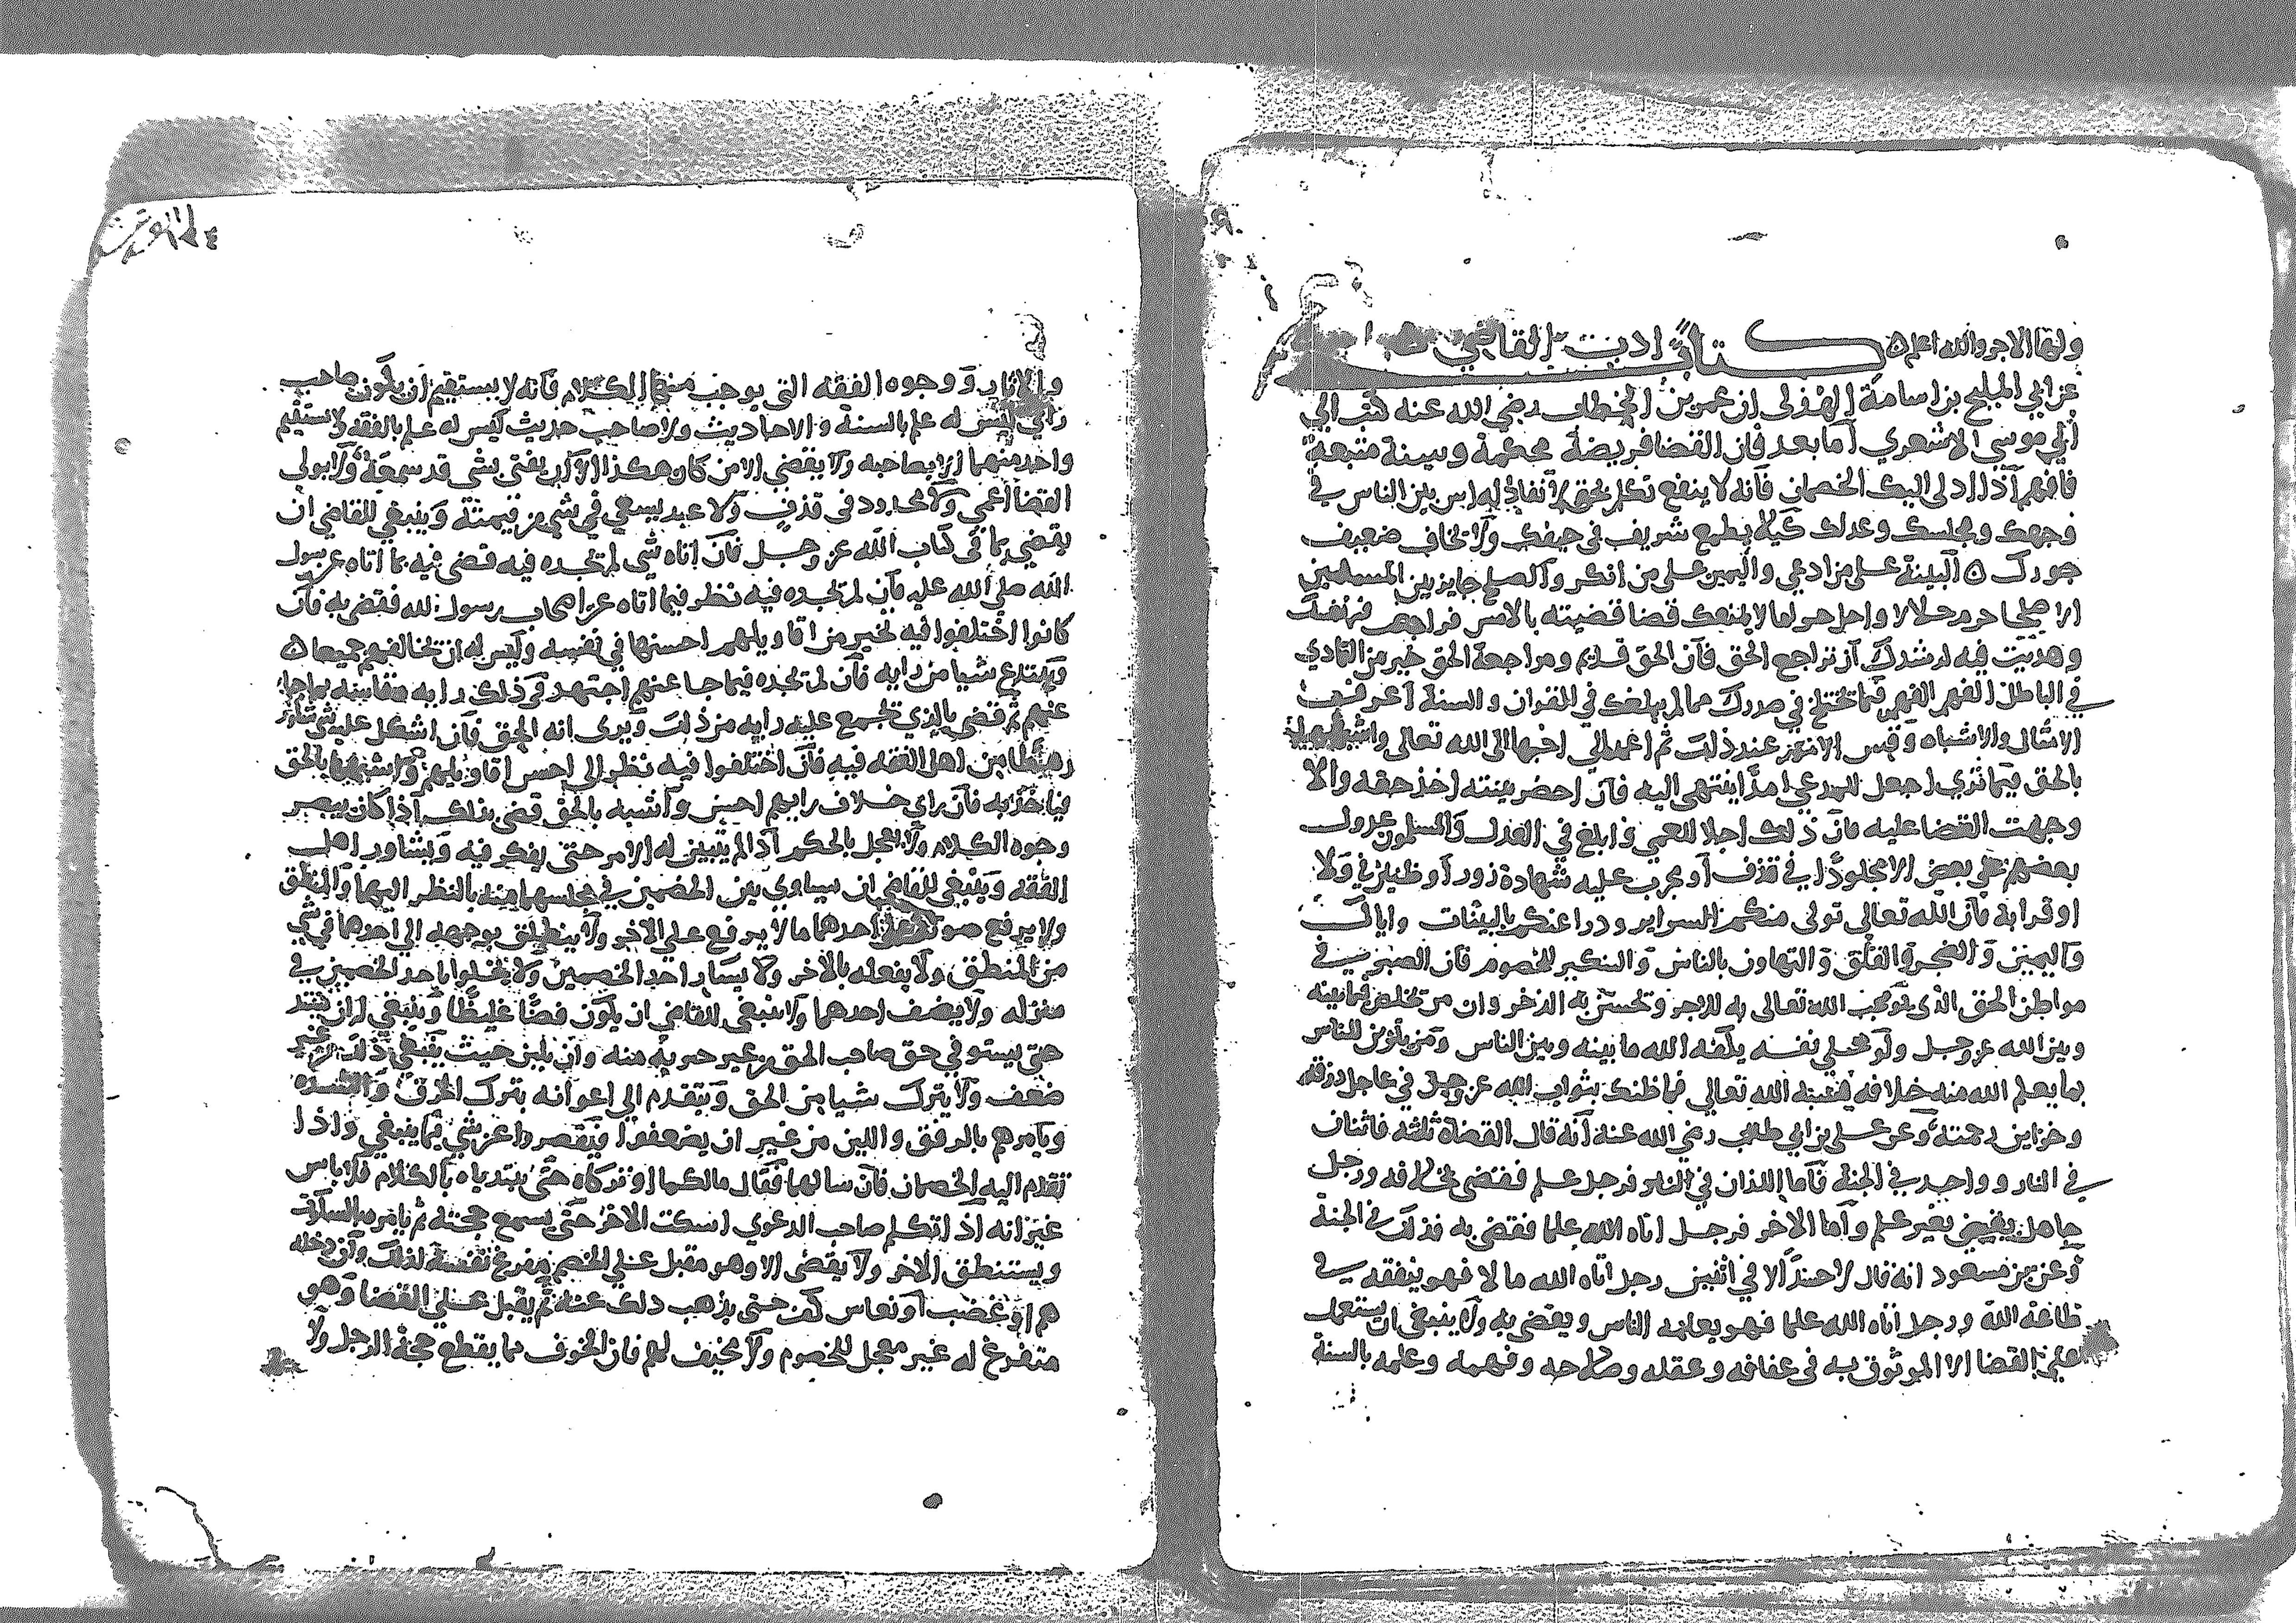 ولها الاجر والله اعلم ه كتاب ادب القاضي
عن ابي المليح بن اسامة الهذلي ان عمر بن الخطاب رضي الله عنه كتب الي
ابي موسى الاشعري اما بعد فان القضا فريضة محكمة وسنة متبعة
فافهم اذا ادلى اليك الخصمان فانه لا ينفع تكلم بحق لا نفاذ له اس بين الناس في
وجهك ومجلسك وعدلك كيلا يطمع شريف في حيفك ولا يخاف ضعيف
جورك ه البينة على من ادعي واليمين على من انكر والصلح جايز بين المسلمين
الا صلحا حرم حلالا واحل حراما لا يمنعك قضا قضيته بالامس فراجعت فيه نفسك
وهديت فيه لرشدك ان تراجع الحق فان الحق قديم ومراجعة الحق خير من التمادي
في الباطل الفهم الفهم فيما تختلج في صدرك مما لم يبلغك في القران والسنة اعرف
الامثال والاشباه وقس الامور عند ذلك ثم اعمد الي احبها الى الله تعالى واشبهها
بالحق فيما تري اجعل للمدعي امدا ينتهى اليه فان احضر بينته اخذ حقه والا
وجهت القضا عليه فان ذلك اجلا للعمي وابلغ في العذر والمسلمون عدول
بعضهم على بعض الا مجلودا في قذف او مجرب عليه شهادة زور او ظنين في ولا
او قرابة فان الله تعالى تولى منكم السراير ودرا عنكم بالبينات واياك
واليمين والضجر والقلق والتهاون بالناس والتنكير للخصوم فان الصبر في
مواطن الحق الذي يوجب الله تعالى به الاجر وتحسن به الذخر وان من تخلص فيما بينه
وبين الله عز وجل ولو على نفسه يكفه الله ما بينه وبين الناس ومن يتزين للناس
بما يعلم الله منه خلافه الله تعالي فما ظنك بثواب الله عز وجل في عاجل رزقه
وخزاين رحمته وعن علي بن ابي طالب رضي الله عنه انه قال القضاة ثلثه فاثنان
في النار وواحد في الجنة فاما اللذان في النار فرجل علم فقضى بخلافه ورجل
جاهل يقضي بغير علم واما الاخر فرجل اتاه الله علما فقضى به فذلك في الجنة
وعن بن مسعود انه قال لا حسد الا في اثنين رجل اتاه الله مالا فهو ينفقه في
طاعة الله ورجل اتاه الله علما فهو يعلمه الناس ويقضي به ولا ينبغي ان يستعمل
على القضا الا الموثوق به في عفافه وعقله وصلاحه وفهمه وعلمه بالسنة
والاثار ووجوه الفقه التي يوجب منها الكلام فانه لا يستقيم ان يكون صاحب
راي ليس له علم بالسنة والاحاديث ولا صاحب حديث ليس له علم بالفقه لا يستقيم
واحد منهما الا بصاحبه ولا يقضي الا من كان هكذا الا ان يفتي بشي قد سمعه ولا يولي
القضا اعمي ولا محدود في قذف ولا عبد يسعي في شي من قيمته وينبغي للقاضي ان
يقضي بما في كتاب الله عز وجل فان اتاه شي لم يجده فيه قضى فيه بما اتاه عن رسول
الله صلى الله عليه فان لم يجده فيه نظر فيما اتاه عن اصحاب رسول الله فقضى به فان
كانوا اختلفوا فيه تخير من اقاويلهم احسنها في نفسه وليس له ان يخالفهم جميعا ه
ويبتدع شيا من رايه فان لم يجده فيما جا عنهم اجتهد في ذلك رايه وقايسه بما جا
عنهم ثم قضى بالذي تجمع عليه رايه من ذلك ويرى انه الحق فان اشكل عليه شي شاور
رهطا من اهل الفقه فيه فان اختلفوا فيه نظر الى احسن اقاويلهم واشبهها بالحق
فياخذ به فان راي خلاف رايهم احسن واشبه بالحق قضى بذلك اذا كان يبصر
وجوه الكلام ولا يعجل بالحكم اذا لم يتبين له الامر حتى يفكر فيه ويشاور اهل
الفقه وينبغي للقاضي ان يساوي بين الخصمين في مجلسهما منه بالنظر اليهما والمنطق
ولا يرفع صوته على احدهما ما لا يرفع على الاخر ولا ينطلق بوجهه الي احدهما في شي
من المنطق ولا يفعله بالاخر ولا يسار احد الخصمين ولا يخلوا باحد الخصمين في
منزله ولا يضف احدهما ولا ينبغي للقاضي ان يكون فضا غليظا وينبغي ان يشتد
حتى يستوفي حق صاحب الحق من غير جبرية منه وان يلين حيث ينبغي ذلك من غير
ضعف ولا يترك شيا من الحق ويتقدم الى اعوانه بترك الخرق والشده
ويامرهم بالرفق واللين من غير ان يضعفوا فيقصروا عن شي مما ينبغي واذا
تقدم اليه الخصمان فان سالهما فقال مالكما او تركاه حتى يبتدياه بالكلام فلا باس
غير انه اذا تكلم صاحب الدعوي اسكت الاخر حتى يسمع حجته ثم يامره بالسكوت
ويستنطق الاخر ولا يقضى الا وهو مقبل على الخصم مفرغ نفسه لذلك وان دخله
هم او غضب او نعاس كف حتى يذهب ذلك عنه ثم يقبل على القضا وهو
متفرغ له غير معجل للخصوم ولا مخيف لهم فان الخوف مما يقطع حجة الرجل ولا